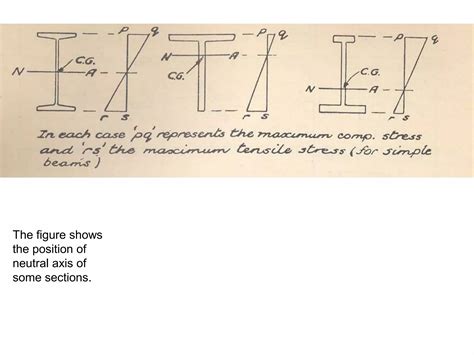 P q P q P q
C.G. N A
N A C.G. C.G.
N A
r s r s r s
In each case 'pq' represents the maximum comp. stress
and 'rs' the maximum tensile stress (for simple
beams)
The figure shows
the position of
neutral axis of
some sections.